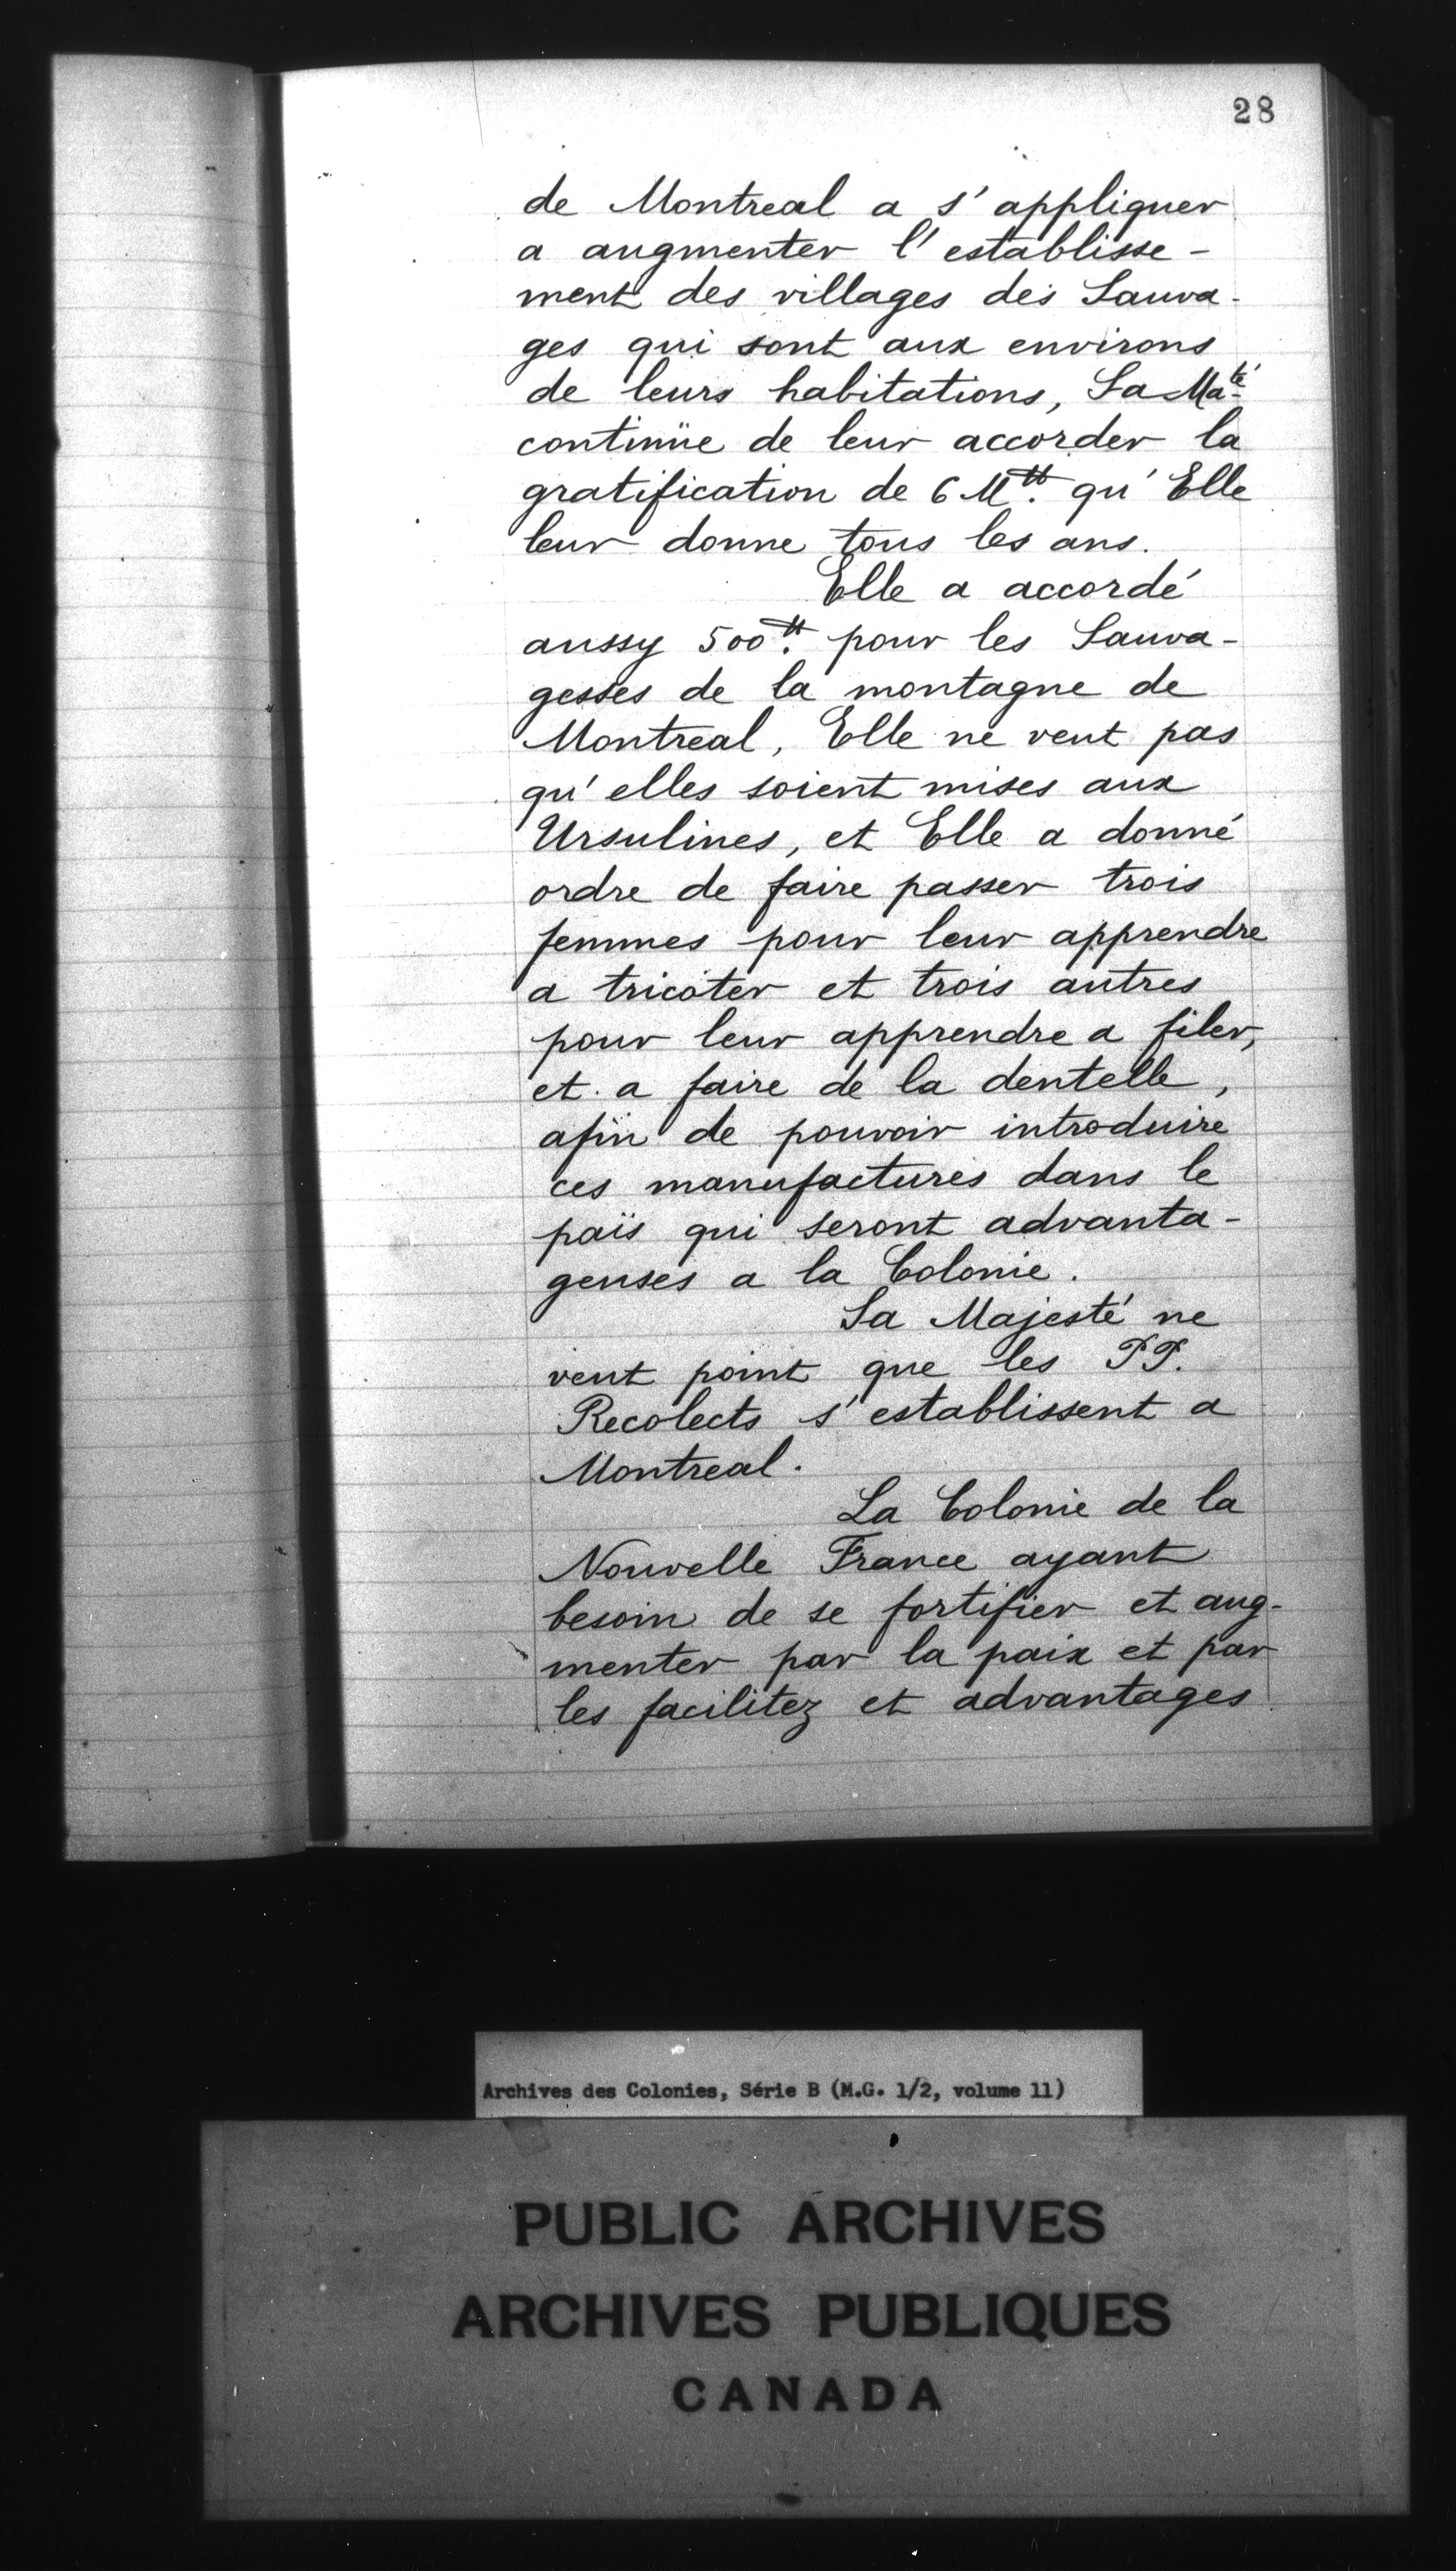 28
de Montreal a s'appliquer
a augmenter l'establisse-
ment des villages des Sauva-
ges qui sont aux environs
de leurs habitations, Sa Ma.té
continüe de leur accorder la
gratification de 6 M.tt qu'Elle
leur donne tous les ans.
Elle a accordé
aussy 500.tt pour les Sauva-
gesses de la montagne de
Montreal, Elle ne veut pas
qu'elles soient mises aux
Ursulines, et Elle a donné
ordre de faire passer trois
femmes pour leur apprendre
a tricoter et trois autres
pour leur apprendre a filer,
et a faire de la dentelle,
afin de pouvoir introduire
ces manufactures dans le
païs qui seront advanta-
geuses a la Colonie.
Sa Majesté ne
veut point que les PP.
Recolects s'establissent a
Montreal.
La Colonie de la
Nouvelle France ayant
besoin de se fortifier et aug-
menter par la paix et par
les facilitez et advantages
Archives des Colonies, Série B (M.G. 1/2, volume 11)
PUBLIC ARCHIVES
ARCHIVES PUBLIQUES
CANADA